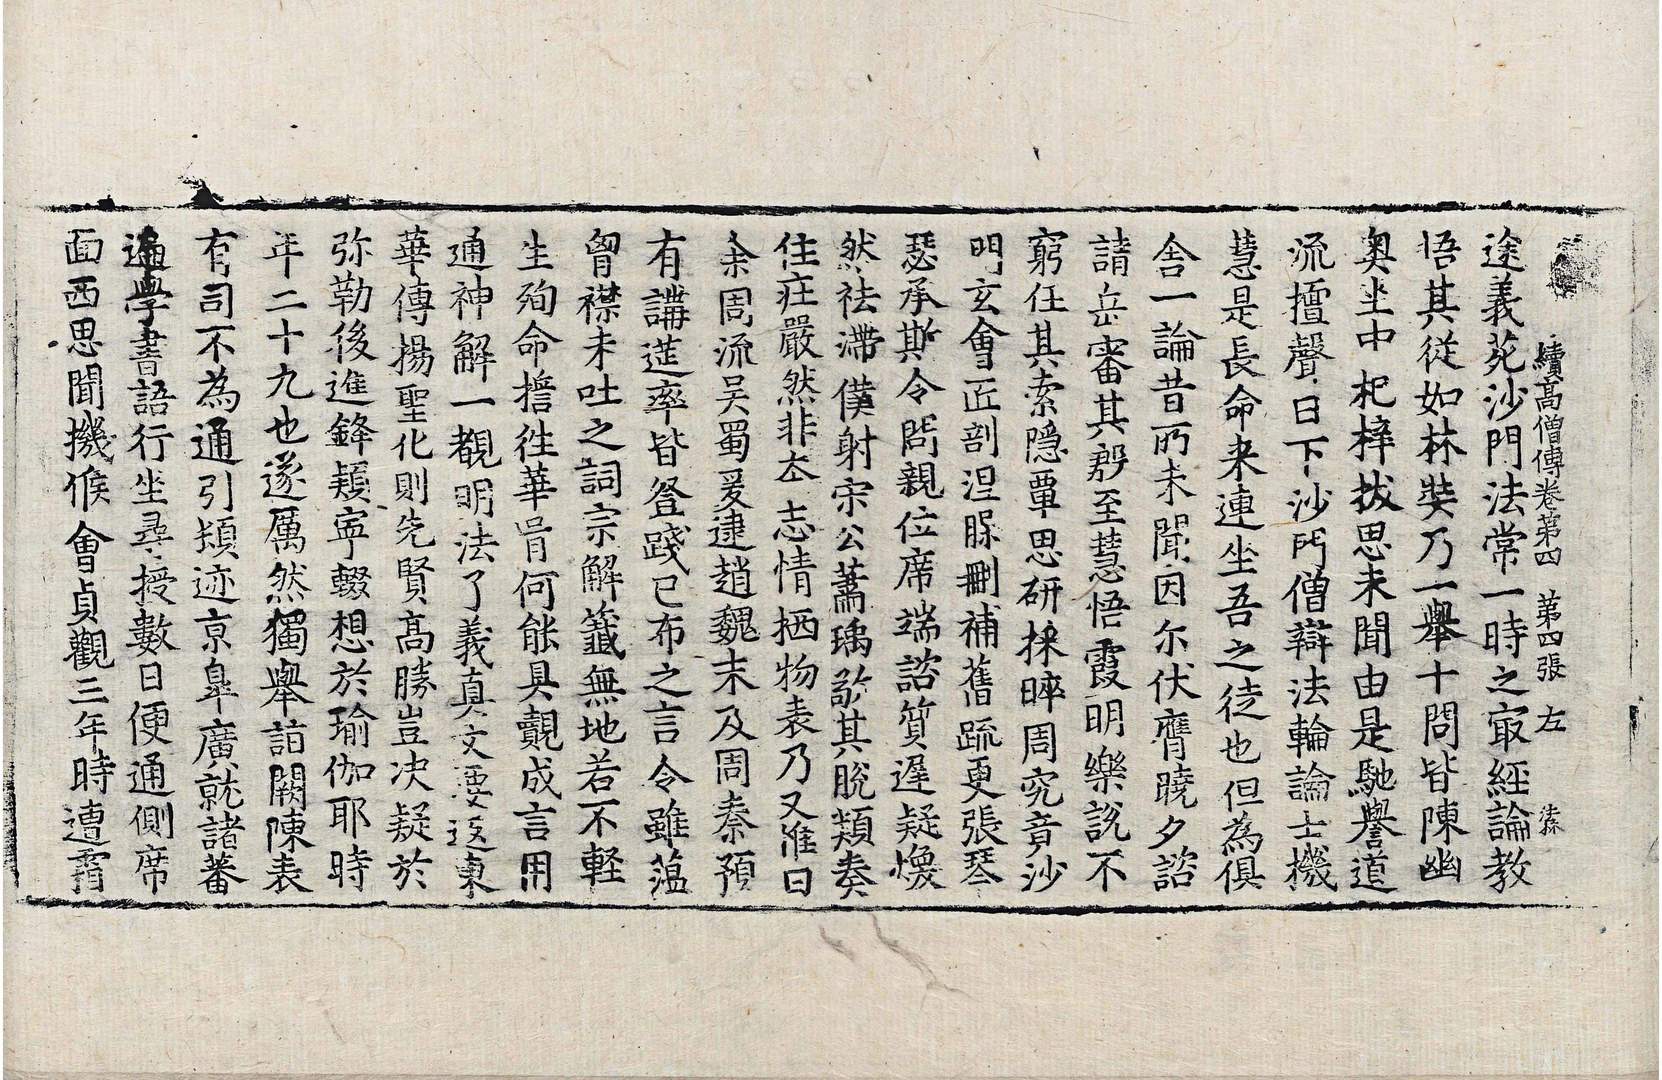 續高僧傳卷第四 第四張 左
途義苑沙門法常一時之㝡經論教
悟其從如林奘乃一舉十問皆陳幽
奥坐中杞梓拔思未聞由是馳譽道
流擅聲日下沙門僧辯法輪論士機
慧是長命来連坐吾之徒也但為俱
舍一論昔所未聞因尔伏膺曉夕諮
請岳審其殷至慧悟霞明樂說不
窮任其索隱覃思研採晬周究竟沙
門玄會匠剖涅脲刪補舊疏更張琴
瑟承斯令問親位席端諮質遅疑煥
然祛滯僕射宋公蕭瑀敬其脫穎奏
住莊嚴然非本志情栖物表乃又惟曰
余周流吴蜀爰逮趙魏末及周秦預
有講莚率皆登踐已布之言令雖蕴
胷襟未吐之詞宗解籤無地若不輕
生殉命誓往華胥何能具覿成言用
通神解一覩明法了義真文要返東
華傳揚聖化則先賢高勝豈决疑於
弥勒後進鋒穎寜輟想於瑜伽耶時
年二十九也遂厲然獨舉詣闕陳表
有司不為通引頓迹京皐廣就諸蕃
遍學書語行坐尋授數日便通側席
面西思聞機候會貞觀三年時遭霜